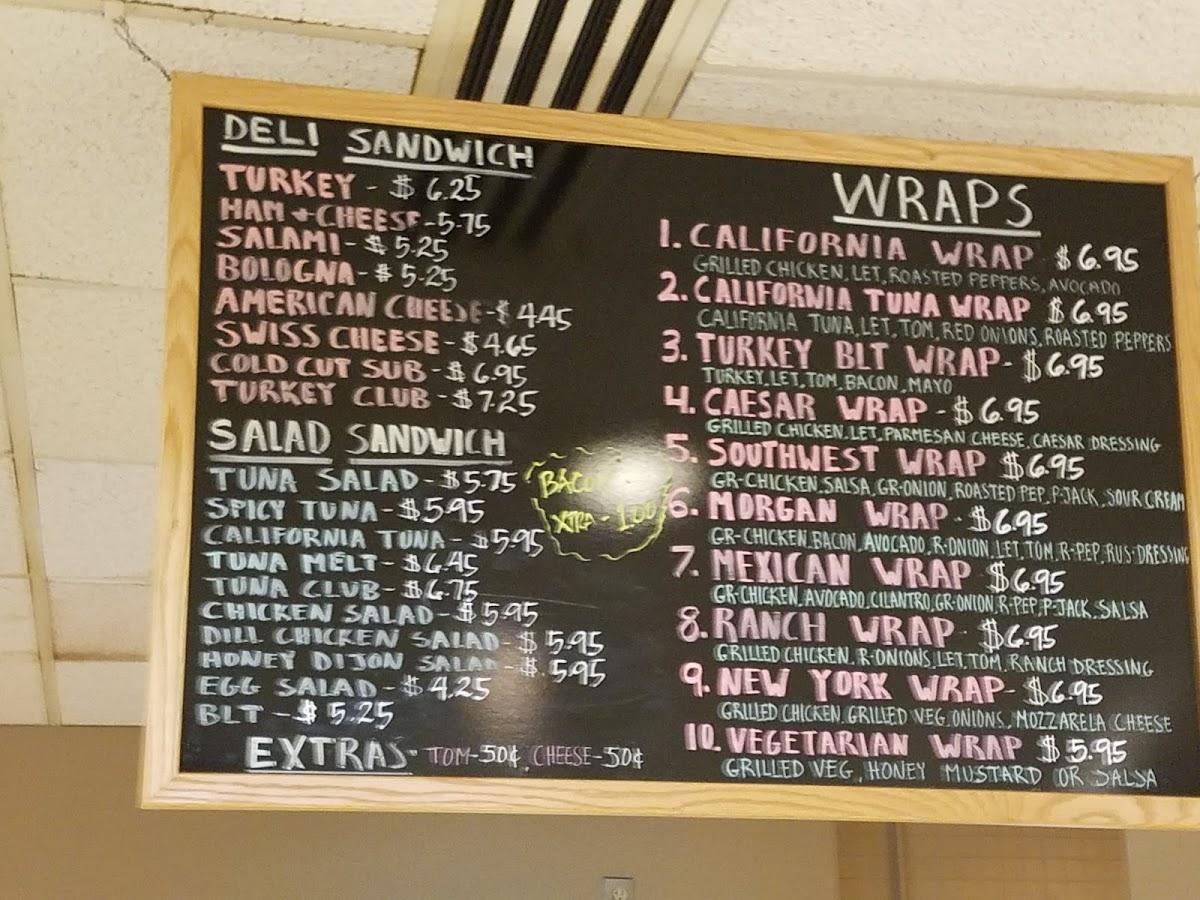 DELI SANDWICH
TURKEY - $ 6.25
HAM + CHEESE - 5.75
SALAMI - $ 5.25
BOLOGNA - $ 5.25
AMERICAN CHEESE - $ 4.45
SWISS CHEESE - $4.65
COLD CUT SUB - $ 6.95
TURKEY CLUB - $7.25
SALAD SANDWICH
TUNA SALAD - $5.75
SPICY TUNA - $5.95
CALIFORNIA TUNA - $5.95
TUNA MELT - $6.45
TUNA CLUB - $6.75
CHICKEN SALAD - $5.95
DILL CHICKEN SALAD - $5.95
HONEY DIJON SALAD - $5.95
EGG SALAD - $4.25
BLT - $5.25
EXTRAS - TOM-50¢, CHEESE-50¢
BACON
XTRA - 1.00
WRAPS
1. CALIFORNIA WRAP $6.95
GRILLED CHICKEN, LET, ROASTED PEPPERS, AVOCADO
2. CALIFORNIA TUNA WRAP $6.95
CALIFORNIA TUNA, LET, TOM, RED ONIONS, ROASTED PEPPERS
3. TURKEY BLT WRAP - $6.95
TURKEY, LET, TOM, BACON, MAYO
4. CAESAR WRAP - $6.95
GRILLED CHICKEN, LET, PARMESAN CHEESE, CAESAR DRESSING
5. SOUTHWEST WRAP $6.95
GR-CHICKEN, SALSA, GR-ONION, ROASTED PEP, P-JACK, SOUR CREAM
6. MORGAN WRAP - $6.95
GR-CHICKEN, BACON, AVOCADO, R-ONION, LET, TOM, R-PEP, RUS-DRESSING
7. MEXICAN WRAP $6.95
GR-CHICKEN, AVOCADO, CILANTRO, GR-ONION, R-PEP, P-JACK, SALSA
8. RANCH WRAP - $6.95
GRILLED CHICKEN, R-ONIONS, LET, TOM, RANCH DRESSING
9. NEW YORK WRAP - $6.95
GRILLED CHICKEN, GRILLED VEG, ONIONS, MOZZARELA CHEESE
10. VEGETARIAN WRAP $5.95
GRILLED VEG, HONEY MUSTARD OR SALSA